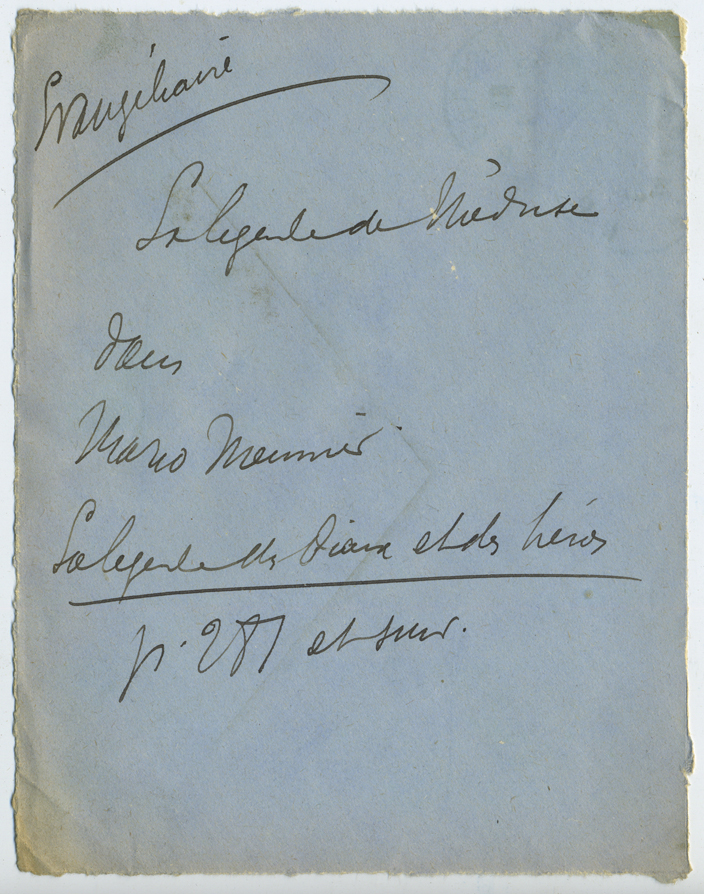 Evangéliaire
La légende de Méduse
dans
Mario Meunier
La légende des Dieux et des héros
p. 287 et suiv.